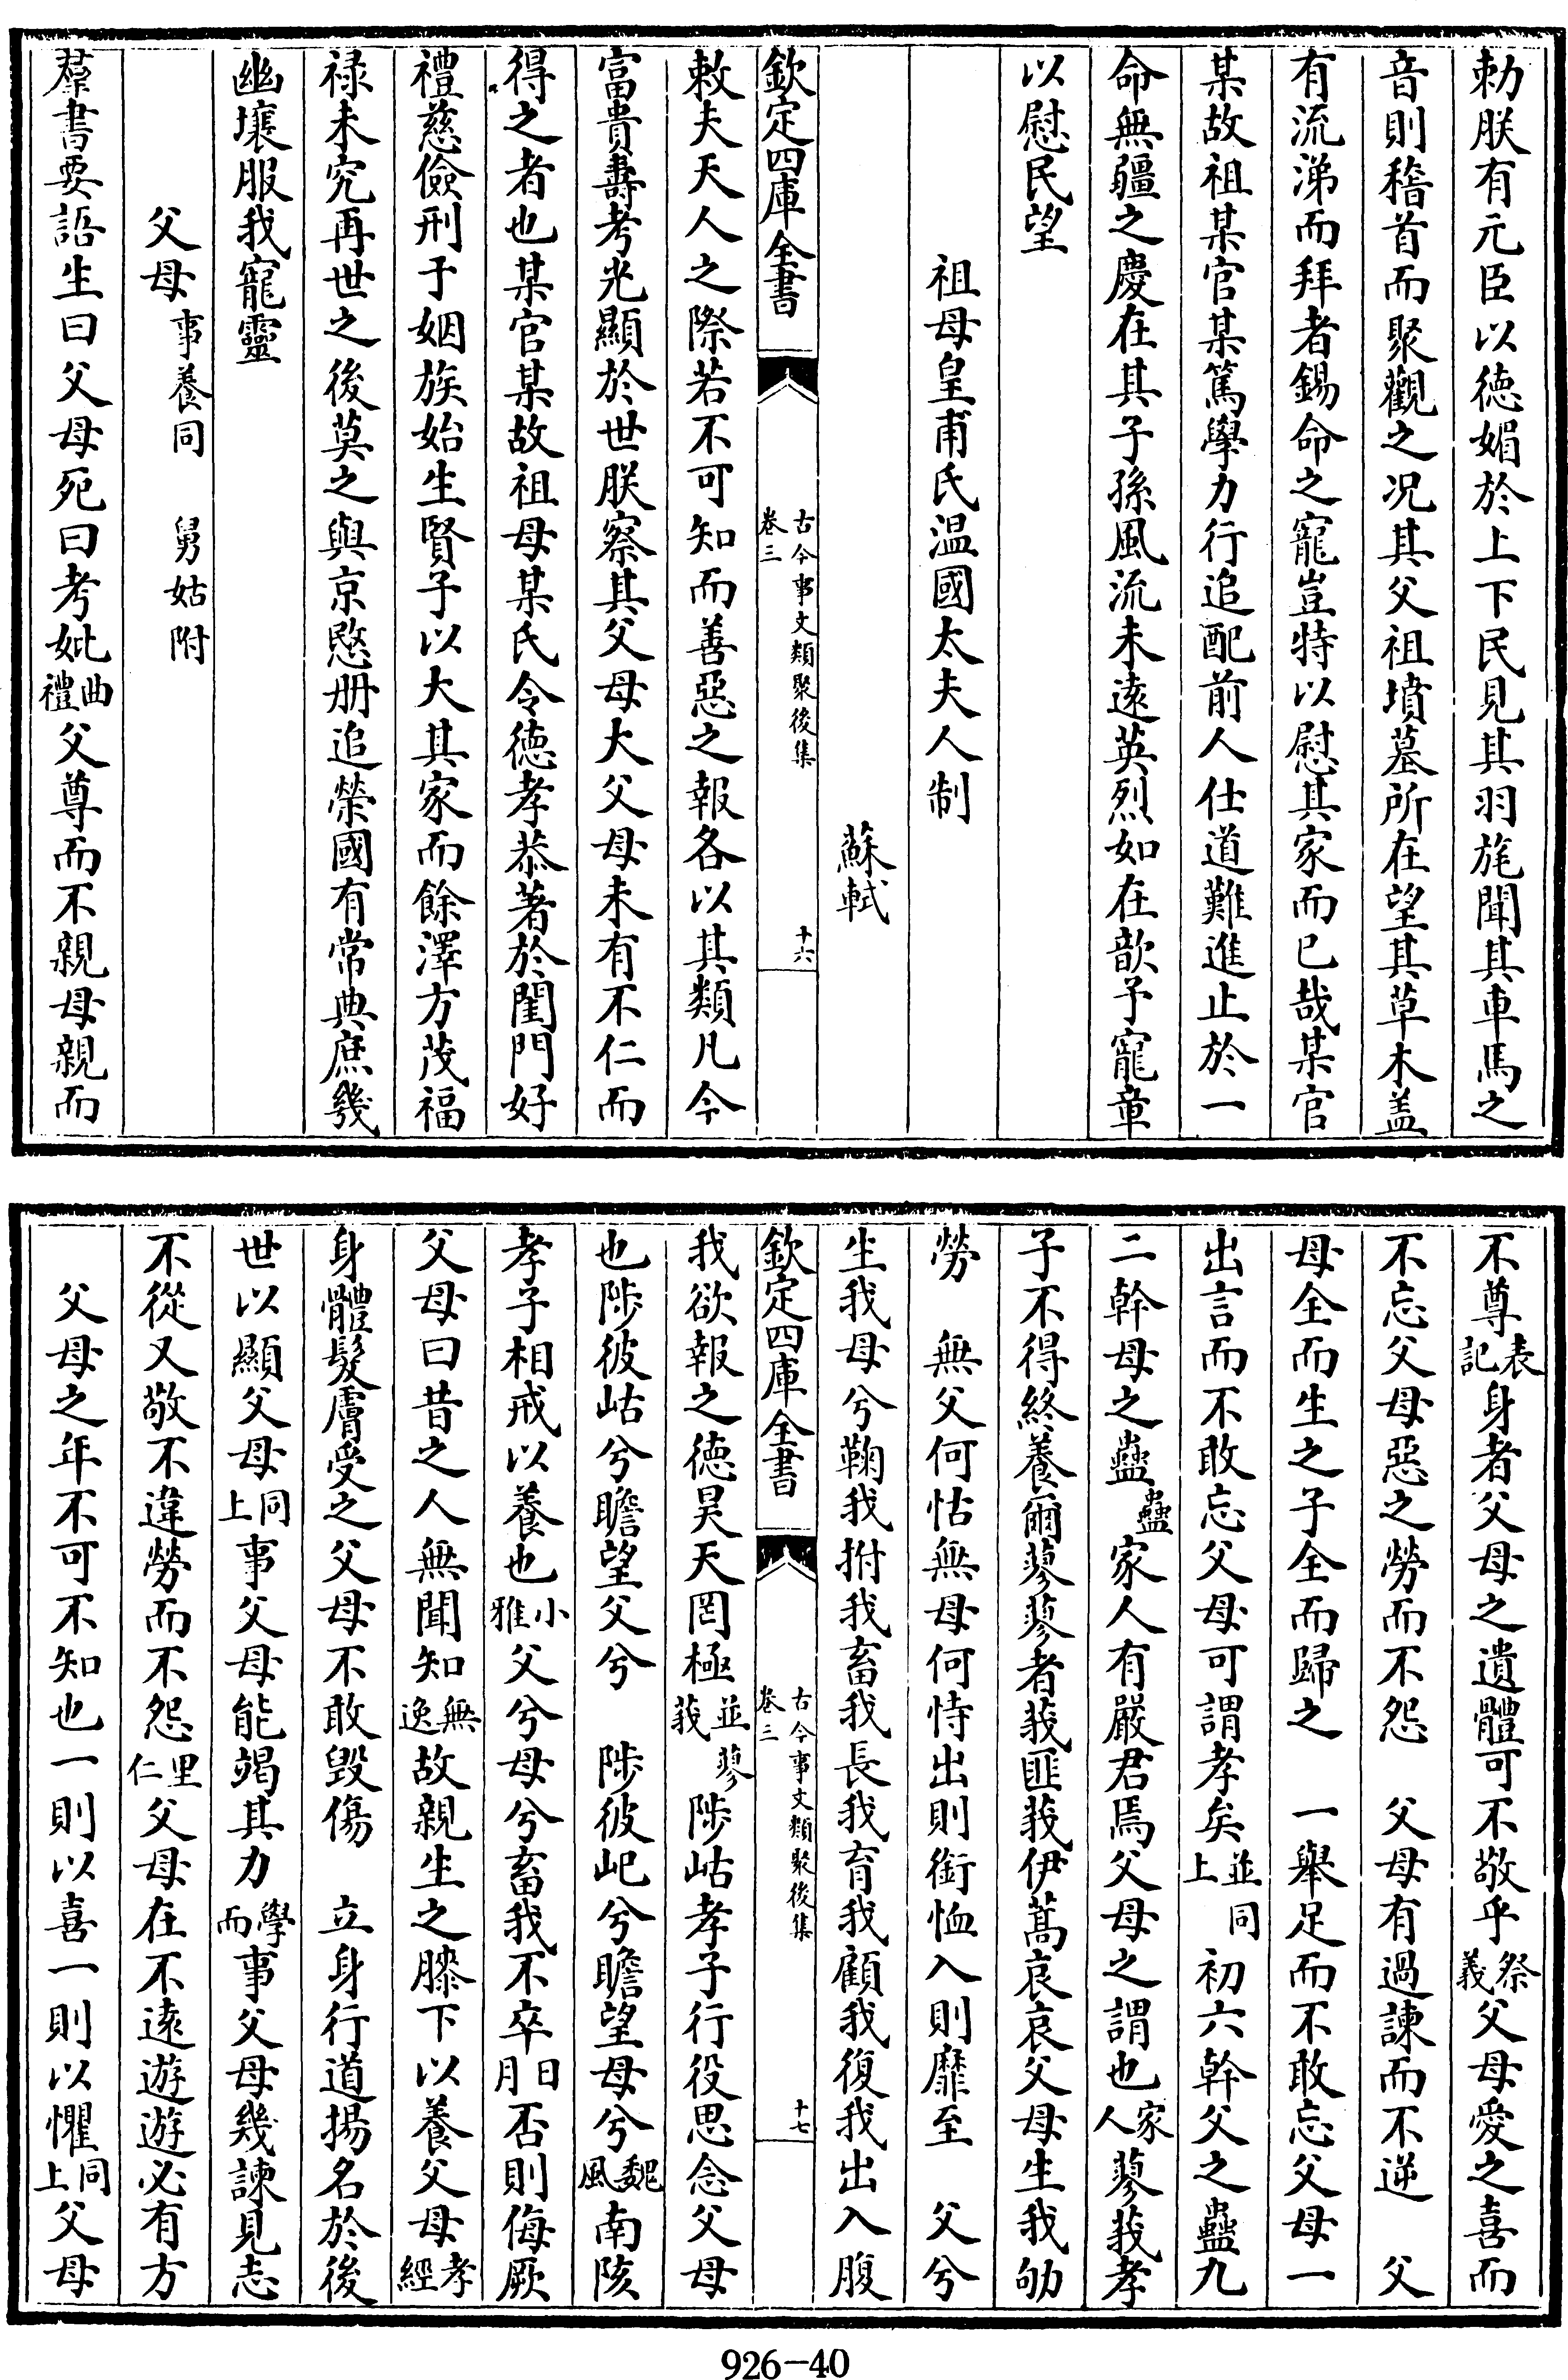 勅朕有元臣以徳媚於上下民見其羽旄聞其車馬之
音則稽首而聚觀之况其父祖墳墓所在望其草木盖
有流涕而拜者錫命之寵豈特以慰其家而已哉某官
某故祖某官某篤學力行追配前人仕道難進止於一
命無疆之慶在其子孫風流未遠英烈如在歆予寵章
以慰民望
祖母皇甫氏温國太夫人制
蘇軾
欽定四庫全書 古今事文類聚後集 卷三 十六
敕夫天人之際若不可知而善惡之報各以其類凡今
富貴壽考光顯於世朕察其父母大父母未有不仁而
得之者也某官某故祖母某氏令徳孝恭著於閨門好
禮慈儉刑于姻族始生賢子以大其家而餘澤方茂福
禄未究再世之後莫之與京愍册追榮國有常典庶幾
幽壤服我寵靈
父母事養同 舅姑附
羣書要語生曰父母死曰考妣曲禮父尊而不親母親而
不尊表記身者父母之遺體可不敬乎祭義父母愛之喜而
不忘父母惡之勞而不怨 父母有過諫而不逆 父
母全而生之子全而歸之 一舉足而不敢忘父母一
出言而不敢忘父母可謂孝矣並同上初六幹父之蠱九
二幹母之蠱蠱家人有嚴君焉父母之謂也家人蓼莪孝
子不得終養爾蓼蓼者莪匪莪伊蒿哀哀父母生我劬
勞 無父何怙無母何恃出則銜恤入則靡至 父兮
生我母兮鞠我拊我畜我長我育我顧我復我出入腹
欽定四庫全書 古今事文類聚後集 卷三 十七
我欲報之徳昊天罔極並蓼莪陟岵孝子行役思念父母
也陟彼岵兮瞻望父兮 陟彼屺兮瞻望母兮魏風南陔
孝子相戒以養也小雅父兮母兮畜我不卒日月否則侮厥
父母曰昔之人無聞知無逸故親生之膝下以養父母孝經
身體髮膚受之父母不敢毁傷 立身行道揚名於後
世以顯父母同上事父母能竭其力學而事父母幾諫見志
不從又敬不違勞而不怨里仁父母在不遠遊遊必有方
父母之年不可不知也一則以喜一則以懼同上父母
926-40